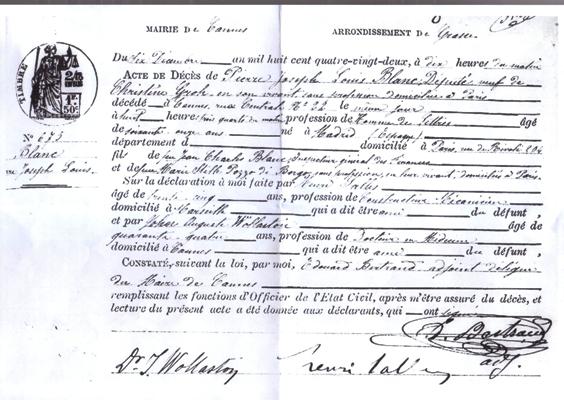 MAIRIE de Cannes
ARRONDISSEMENT de Grasse
TIMBRE
2/10 EN SUS
1F. 50c
Du Six Janvier un mil huit cent quatre-vingt-deux, à dix heures du matin
ACTE DE DÉCÈS de Pierre Joseph Louis Blanc Député veuf de
Christine Groh, en son vivant sans profession domiciliée à Paris
décédé à Cannes, rue Centrale No 22 le même jour
à huit heures trois quarts du matin, profession de Homme de Lettres âgé
de soixante onze ans né à Madrid (Espagne)
département d domicilié à Paris, rue de Rivoli 204
fils de feu Jean Charles Blanc Inspecteur général des finances
et de feue Marie Stelle Pozzo de Borgo, sans profession, en leur vivant, domiciliés à Paris.
Sur la déclaration à moi faite par Henri Salles
âgé de trente cinq ans, profession de Constructeur Mécanicien
domicilié à Marseille qui a dit être ami du défunt,
et par John Auguste Wollaston âgé de
quarante quatre ans, profession de Docteur en Médecine
domicilié à Cannes qui a dit être ami du défunt,
CONSTATÉ, suivant la loi, par moi, Edouard Bertrand adjoint délégué
du Maire de Cannes
remplissant les fonctions d'Officier de l'État Civil, après m'être assuré du décès, et
lecture du présent acte a été donnée aux déclarants, qui ont signé
No 673
Blanc
Joseph Louis.
E. Bertrand
adj.
Dr J Wollaston
Henri Salles